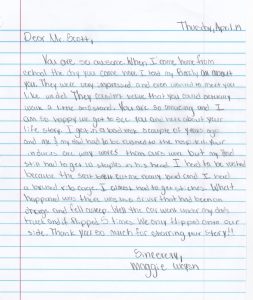 Thursday, April 19
Dear Mr. Scott,
You are so awesome. When I came home from
school the day you came here I told my family all about
you. They were very impressed and even wanted to meet you
like I did! They couldn't believe that you could actually
walk a little and stand. You are so amazing and I
am so happy we got to see you and hear about your
life story. I got in a bad wreck a couple of years ago
and me & my dad had to be rushed to the hospital. Your
injuries are way worse than ours was but my dad
still had to get 16 staples in his head. I had to be
because the seat belt the and I had
a bruised rib cage. I almost had to get stitches. What
happened was there was this driver that had been on
drugs and fell asleep. Well this car went under my dads
truck and it flipped 5 times. We only flipped once on our
side. Thank you so much for sharing your story!!
Sincerely,
Maggie